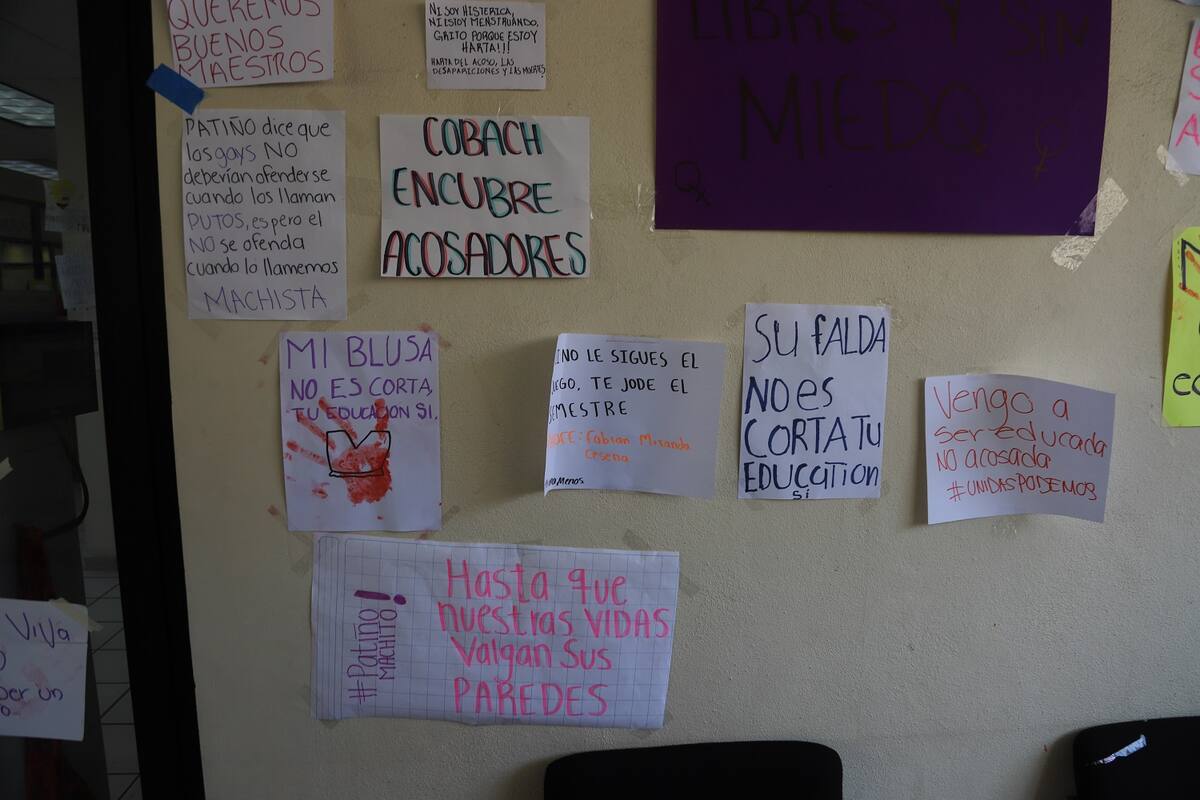 QUEREMOS
BUENOS
MAESTROS
NI SOY HISTERICA,
NI ESTOY MENSTRUANDO,
GRITO PORQUE ESTOY
HARTA!!!
HARTA DEL ACOSO, LAS
DESAPARICIONES Y LAS MUERTES!
LIBRES Y SIN
MIEDO
PATIÑO dice que
los gays NO
deberían ofenderse
cuando los llaman
PUTOS, espero el
NO se ofenda
cuando lo llamemos
MACHISTA
COBACH
ENCUBRE
ACOSADORES
MI BLUSA
NO ES CORTA,
TU EDUCACION SI.
NO LE SIGUES EL
TE JODE EL
SEMESTRE
Fabian Miranda
Cesena
Menos
SU FALDA
NO es
CORTA TU
EDUCATION
Si
Vengo a
ser educada
NO acosada
#UNIDASPODEMOS
#Patiño
MACHITO!
Hasta que
nuestras VIDAS
Valgan Sus
PAREDES
ViVa
un